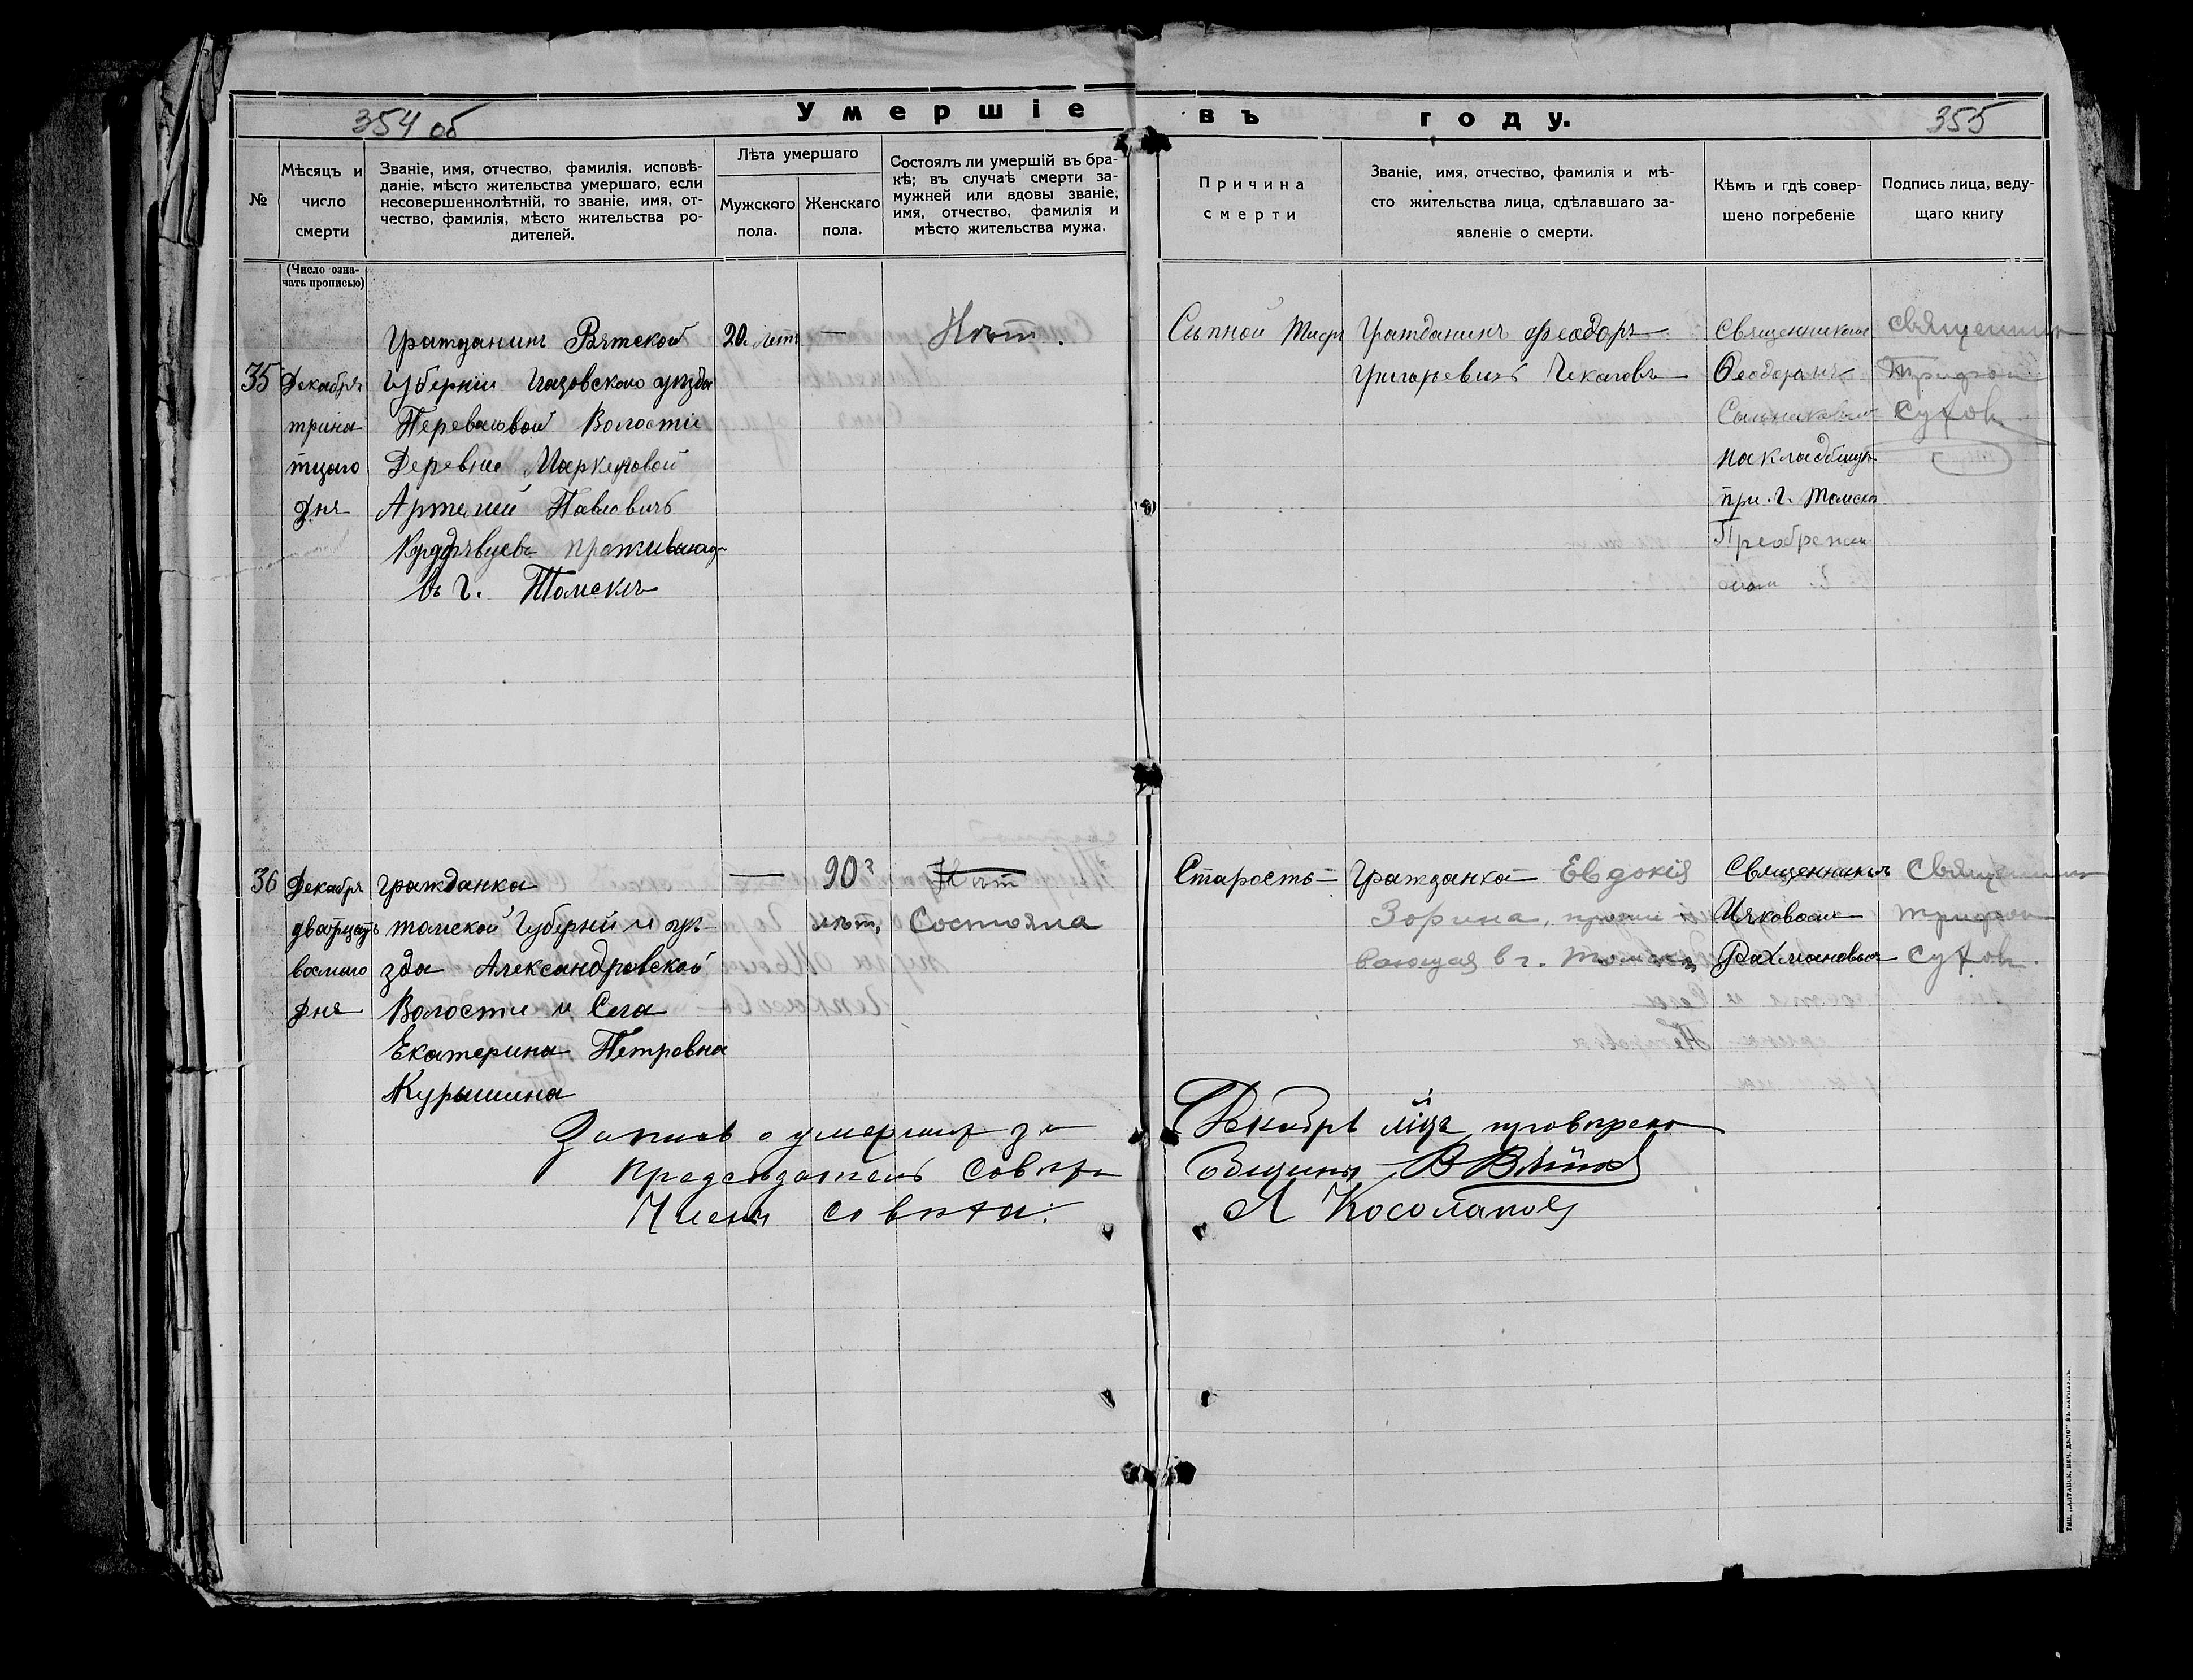 354 об
Умершіе въ году.
355
№
Мѣсяцъ и
число
смерти
Званіе, имя, отчество, фамилія, исповѣ-
даніе, мѣсто жительства умершаго, если
несовершеннолѣтній, то званіе, имя, от-
чество, фамилія, мѣсто жительства ро-
дителей.
Лѣта умершаго
Мужского
пола.
Женскаго
пола.
Состоялъ ли умершій въ бра-
кѣ; въ случаѣ смерти за-
мужней или вдовы званіе,
имя, отчество, фамилія и
мѣсто жительства мужа.
Причина
смерти
Званіе, имя, отчество, фамилія и мѣ-
сто жительства лица, сдѣлавшаго за-
явленіе о смерти.
Кѣмъ и гдѣ совер-
шено погребеніе
Подпись лица, веду-
щаго книгу
(Число озна-
чать прописью)
35
Декабря
трина
тцаго
дня
Гражданинъ Вятской
Губерніи Глазовского уѣзда
Волости
Деревни
Артемий Павловичъ
въ г. Томскѣ
20. лет
—
Нѣт.
Сыпной Тиф
Гражданинъ Феодоръ
Григорьевичъ Чекаловъ
Священником
Ѳеодоромъ
на кладбищѣ
при г. Томскѣ
Священник
Трифон
Сухов
36
Декабря
дватцать
восмаго
дня
Гражданка
томской Губерній и уѣ-
зда Александровской
Волости и Села
Екатерина Петровна
Курышина
—
90
лѣт,
Нѣт
Состояла
Старость
Гражданка Евдокія
Зорина, прожи
вающая в г. Томскѣ
Священникъ
Іяковом
Рахмановым
Священник
Трифон
Сухов.
Запись о умерших за Декабрь м-цъ проверено
Председатель Совѣта Общины
Член совѣта: А Косолапов